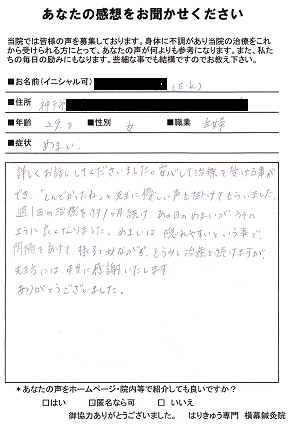 あなたの感想をお聞かせください
当院では皆様の声を募集しております。身体に不調があり当院の治療をこれ
から受けられる方にとって、あなたの声が何よりも参考になります。また、私た
ちの毎日の励みにもなります。些細な事でも結構ですのでお教え下さい。
■お名前(イニシャル可) (E.K)
■住所 神戸市
■年齢 29才 ■性別 女 ■職業 主婦
■症状 めまい
詳しくお話ししてくださいました。安心して治療を受ける事が
でき、「しんどかったね」と先生に優しい声も掛けてもらいました。
週1回の治療を約1ヶ月続け、あの日のめまいがうその
ように良くなりました。めまいは、隠れやすいという事で、
間隔をあけて、様子をみながら、もう少し治療を続けますが、
先生方には、本当に感謝いたします。
ありがとうございました。
*あなたの声をホームページ・院内等で紹介しても良いですか?
□はい ☑匿名なら可 □いいえ
御協力ありがとうございました。 はりきゅう専門 横幕鍼灸院